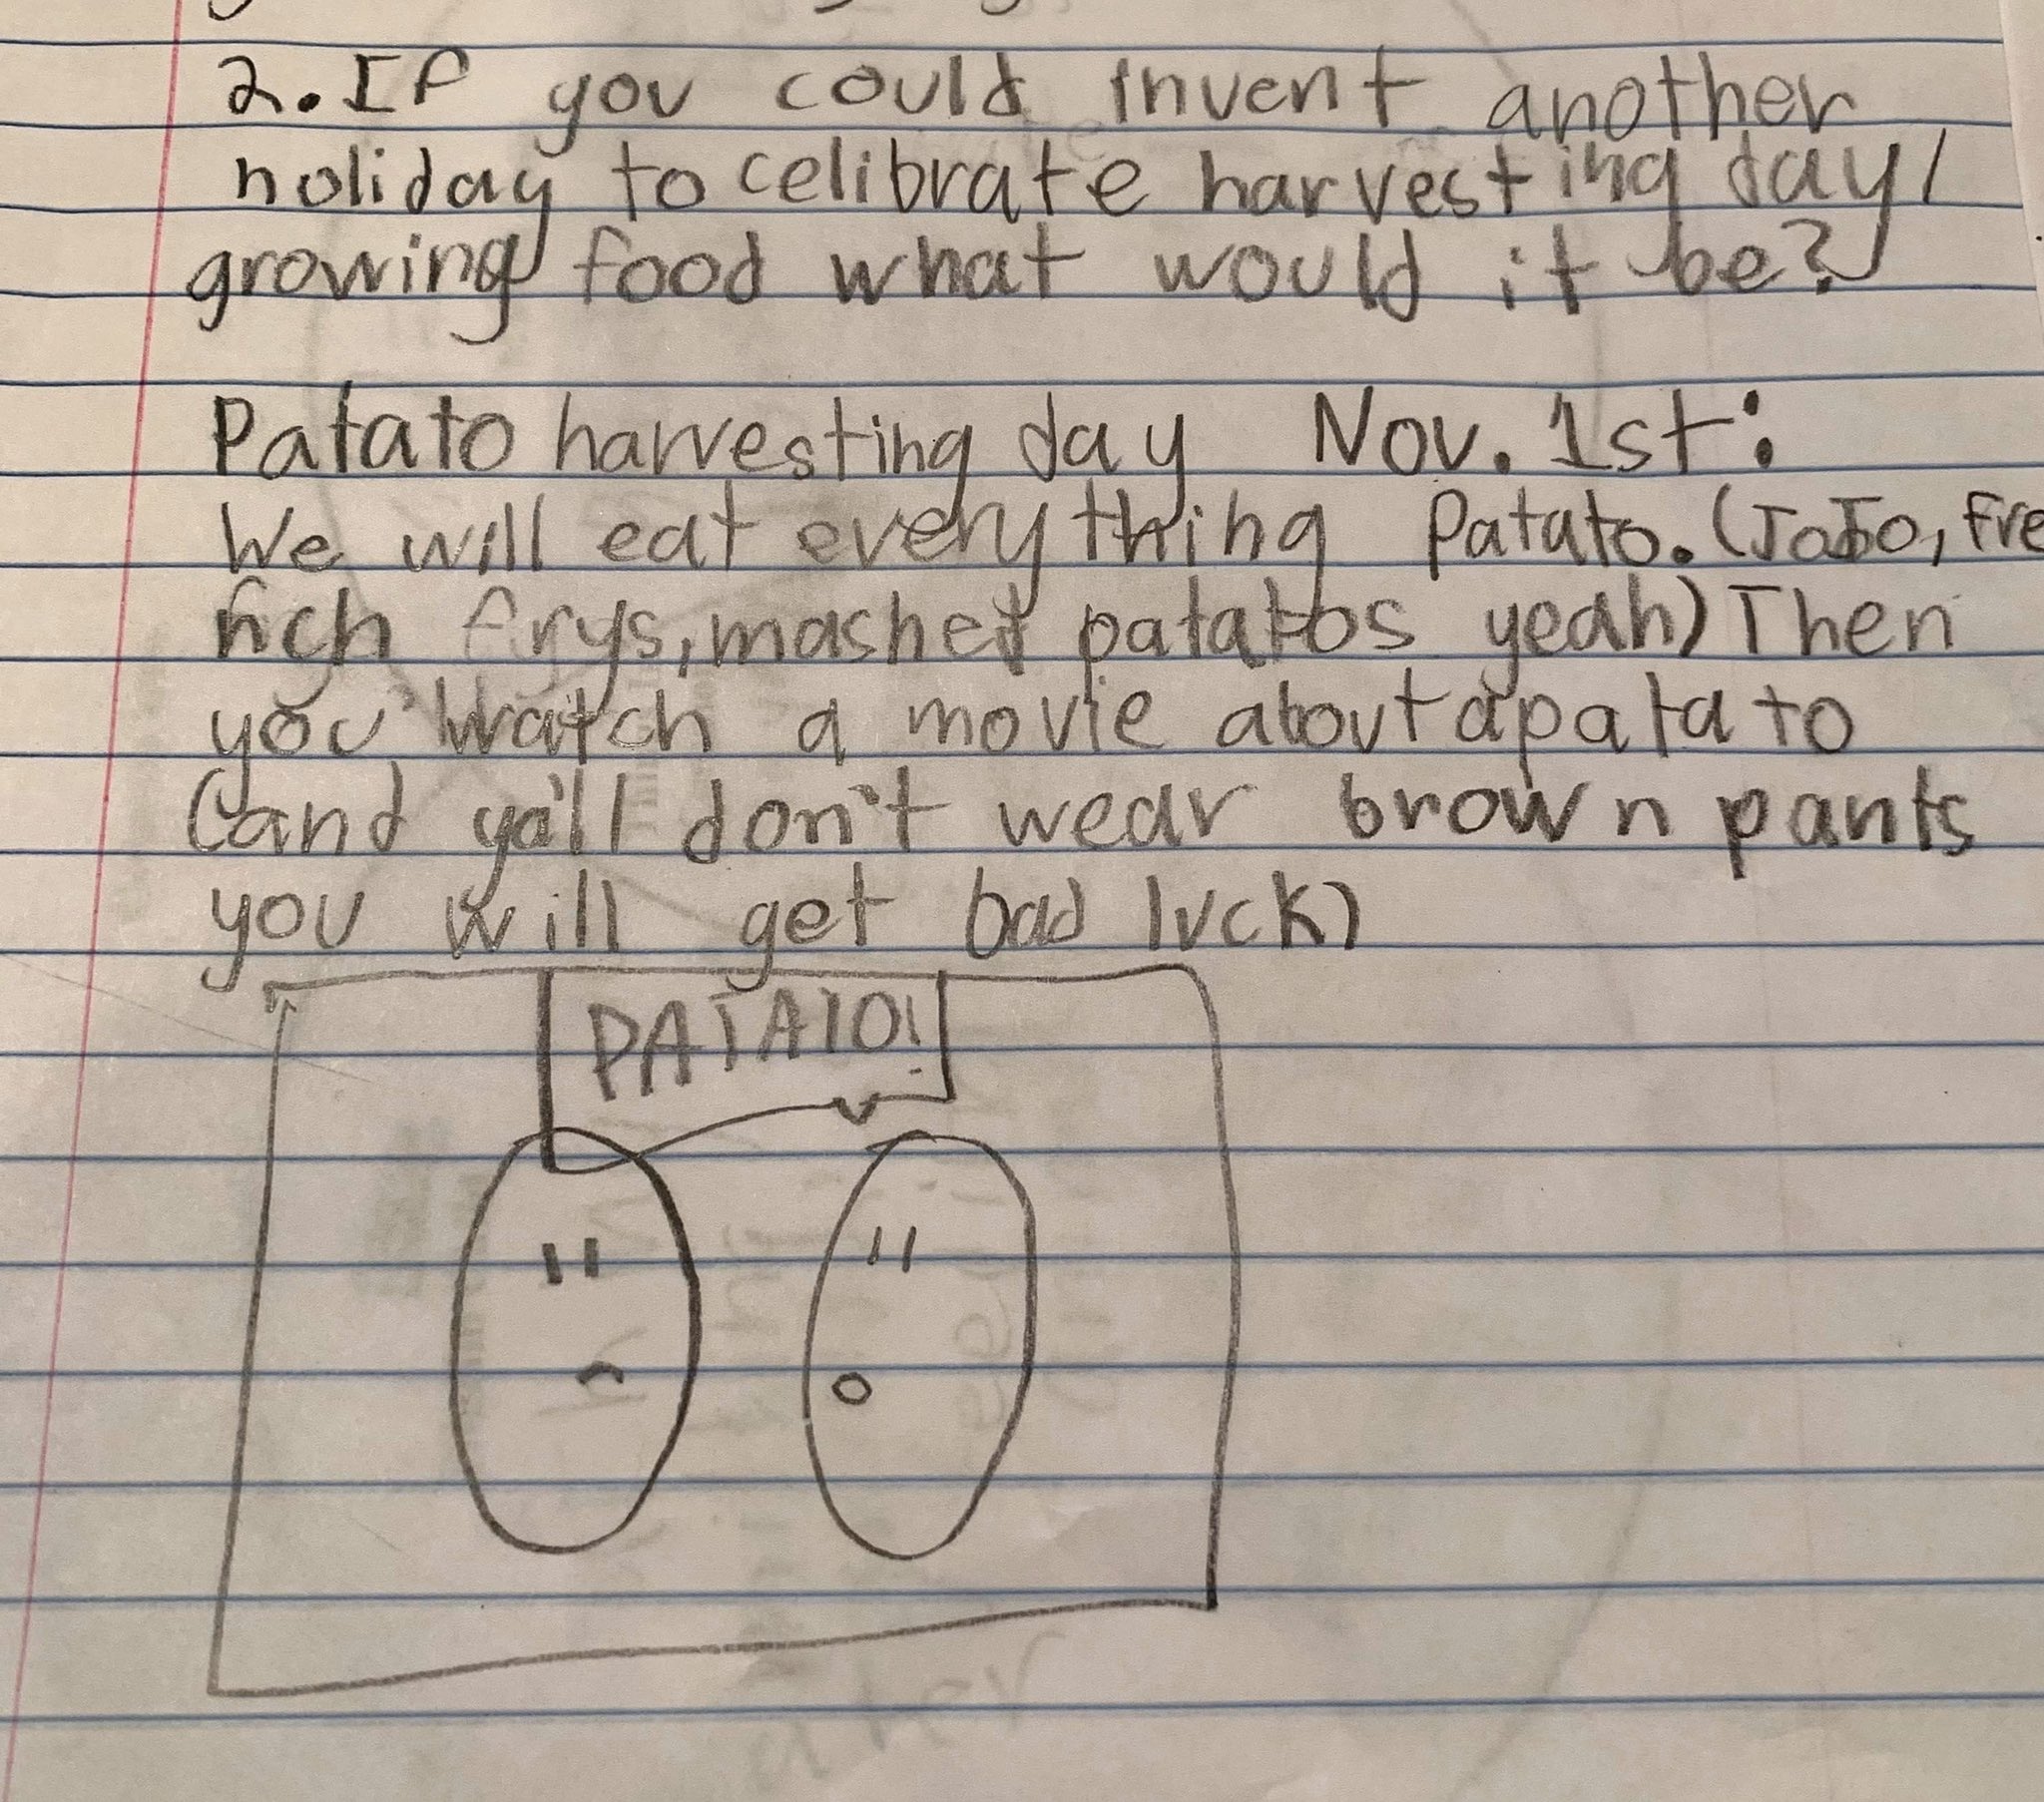 2. If you could invent another
holiday to celibrate harvesting day/
growing food what would it be?
Patato harvesting day Nov. 1st:
We will eat everything Patato. (JoJo, fre
nch frys, mashed patatos yeah) Then
you watch a movie about a patato
(and ya'll don't wear brown pants
you will get bad luck)
PATATO!